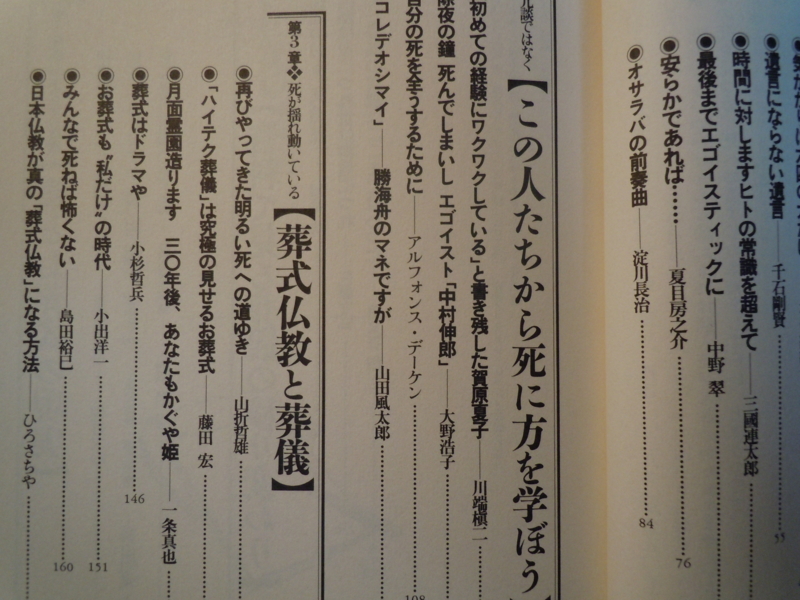 遺言にならない遺言――千石剛賢 55
時間に対しますヒトの常識を超えて――三國連太郎
最後までエゴイスティックに――中野 翠
安らかであれば……――夏目房之介 76
オサラバの前奏曲――淀川長治 84
冗談ではなく【この人たちから死に方を学ぼう】
初めての経験にワクワクしている」と書き残した賀原夏子――川端槇二
除夜の鐘 死んでしまいし エゴイスト「中村伸郎」――大野浩子
自分の死を全うするために――アルフォンス・デーケン 108
コレデオシマイ」――勝海舟のマネですが――山田風太郎
第3章❖死が揺れ動いている【葬式仏教と葬儀】
◉再びやってきた明るい死への道ゆき――山折哲雄
◉「ハイテク葬儀」は究極の見せるお葬式――藤田 宏
◉月面霊園造ります 三〇年後、あなたもかぐや姫――一条真也
◉葬式はドラマや――小杉哲兵 146
◉お葬式も〝私だけ〟の時代――小出洋一 151
◉みんなで死ねば怖くない――島田裕巳 160
◉日本仏教が真の「葬式仏教」になる方法――ひろさちや